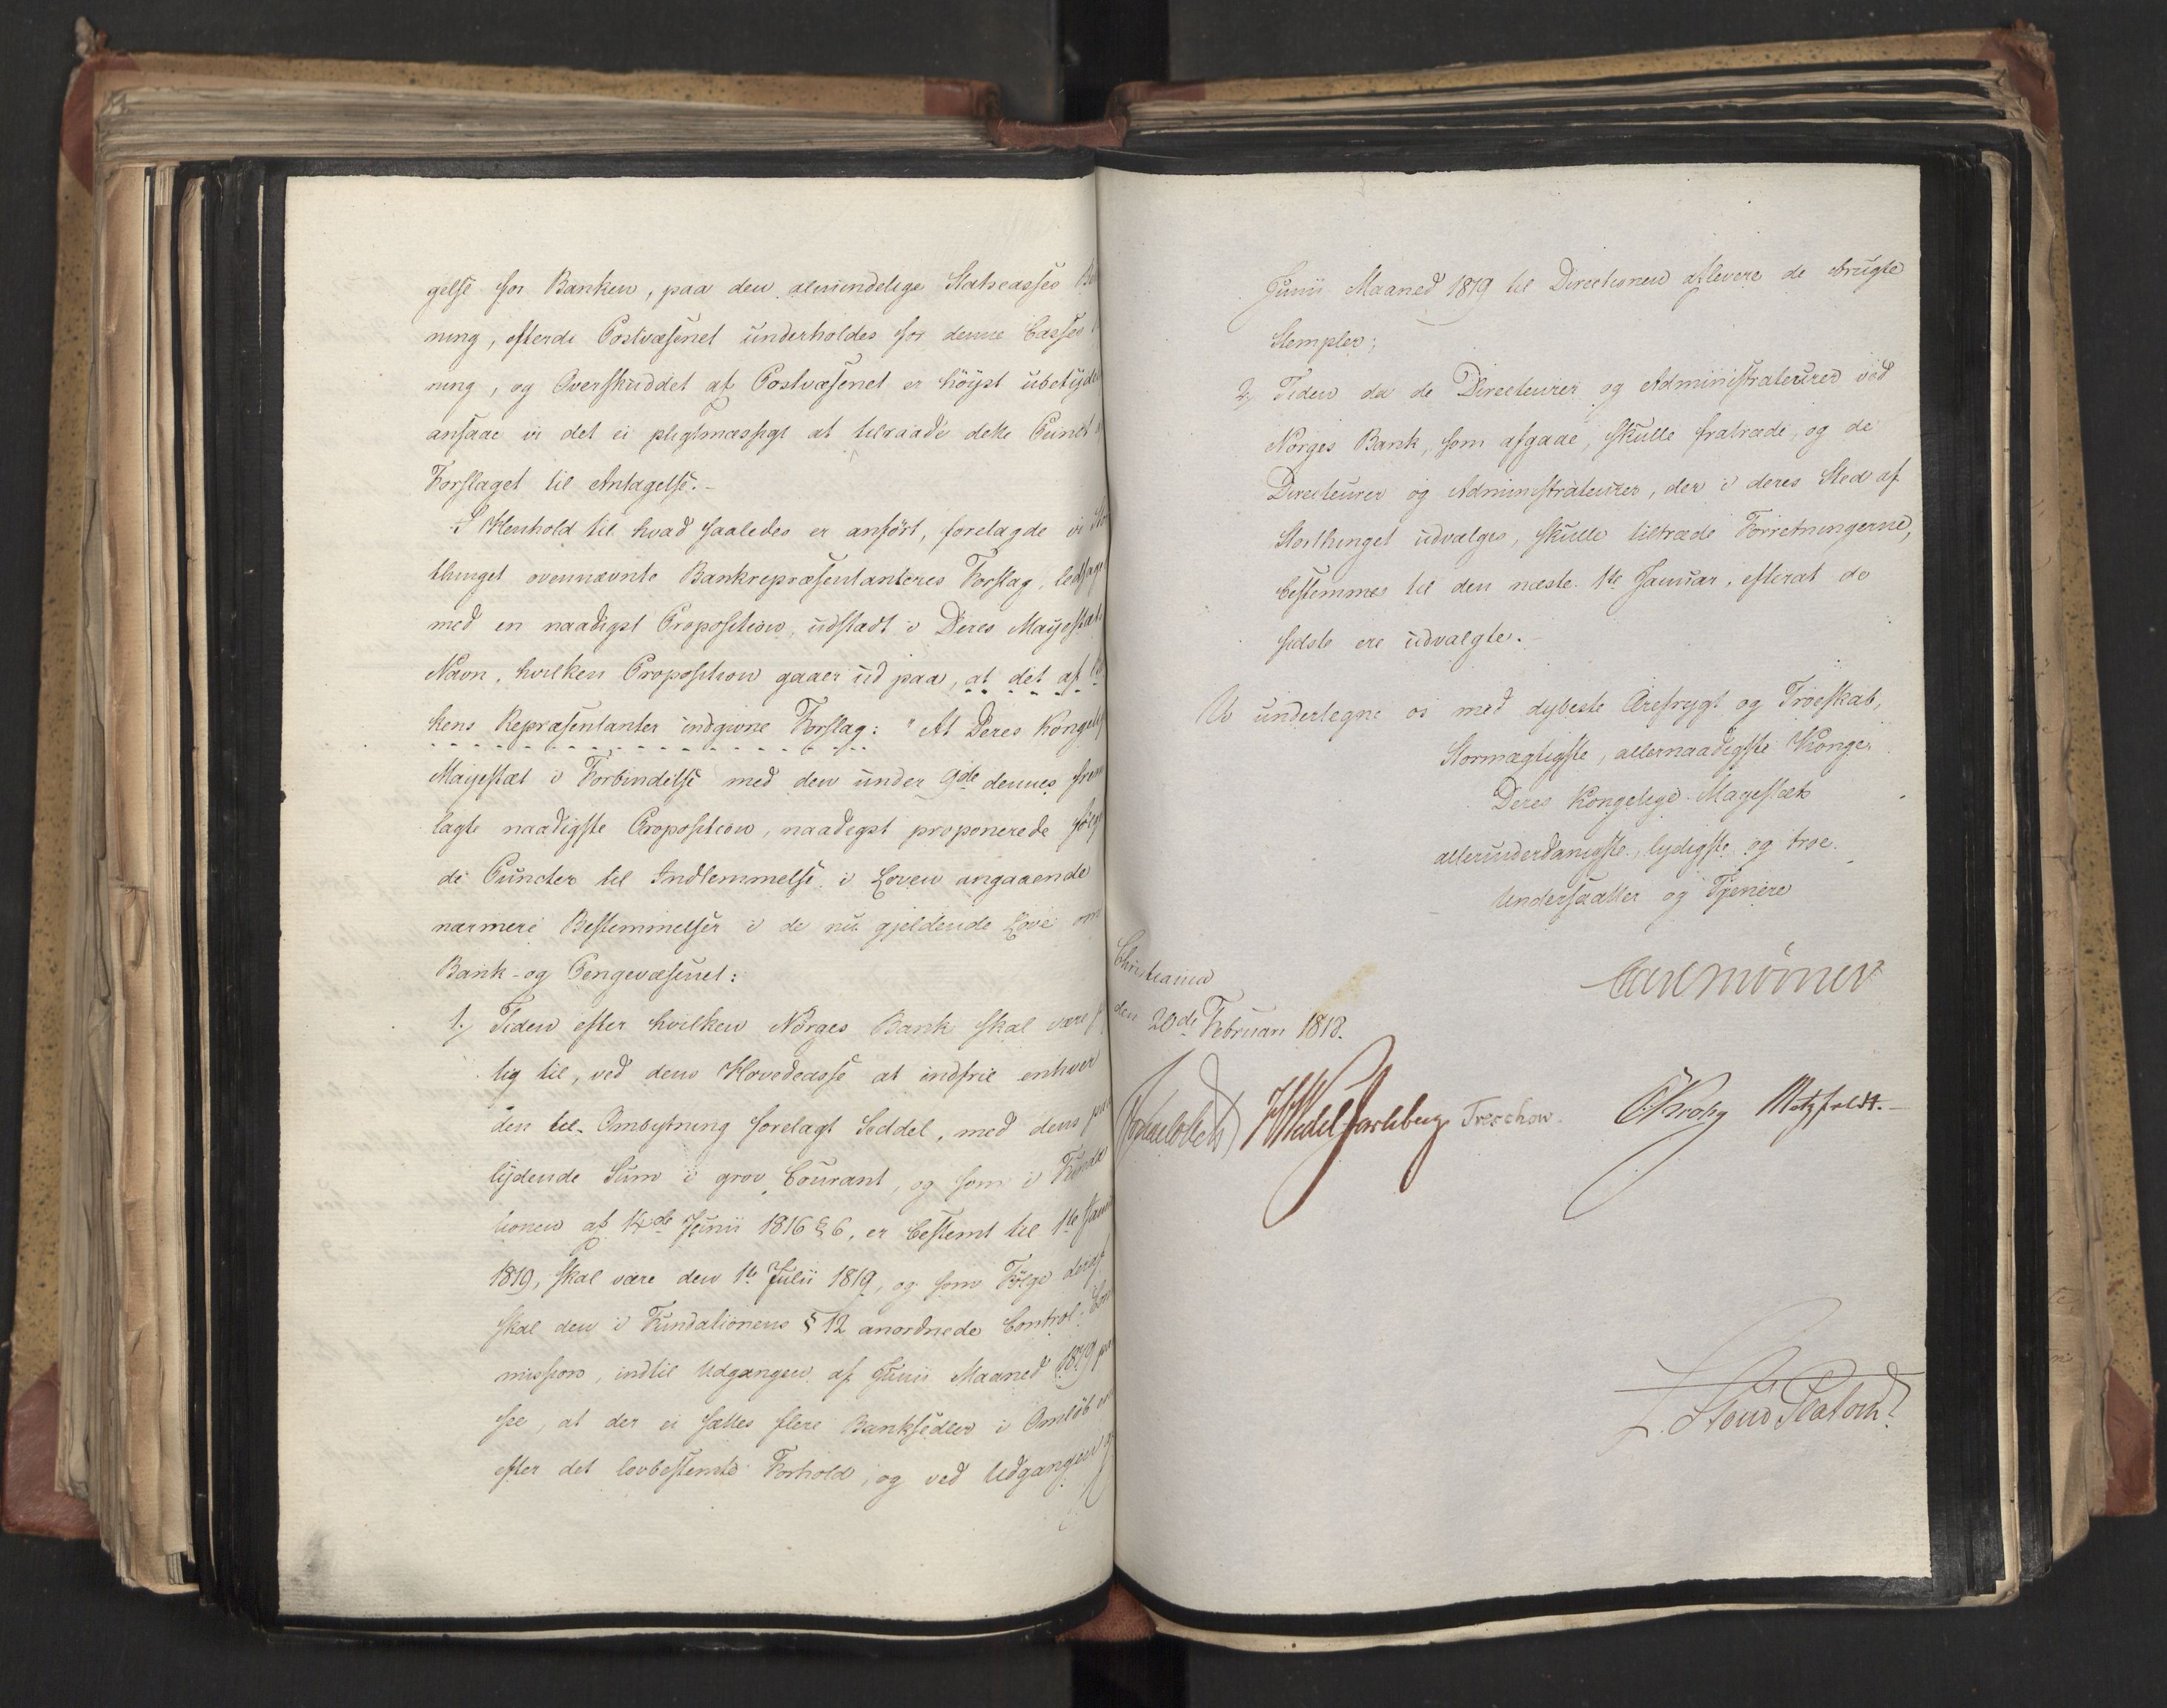 gelse for Banken, paa den almindelige Statscasses
ning, efterdi Postvæsenet underholdes for denne Casses
ning, og Overskuddet af Postvæsenet er höyst ubetyde
ansaae vi det ei pligtmæssigt at tilraade dette Punct
Forslaget til Antagelse.-
I Henhold til hvad saaledes er anfört, forelagde vi Stor
thinget ovennævnte Bankrepræsentanteres Forslag, ledsaget
med en naadigst Proposition, udstædt i Deres Majestæts
Navn, hvilken Proposition gaaer ud paa, at det af
kens Repræsentanter indgivne Forslag: "At Deres Kongelige
Majestæt i Forbindelse med den under 9de dennes frem
lagte naadigste Proposition, naadigst proponerede fölgen
de Puncter til Indlemmelse i Loven angaaende
nærmere Bestemmelser i de nu gjeldende Love om
Bank- og Pengevæsenet:
1, Tiden efter hvilken Norges Bank skal være
tig til, ved dens Hovedcasse at indfrie enhver
den til Ombytning forelagt Seddel, med dens
lydende Sum i grov Courant, og som i Funda
tionen af 14de Junii 1816 § 6, er bestemt til 1te Januar
1819, skal være den 1te Julii 1819, og som Fölge deraf
skal den i Fundationens § 12 anordnede Control-Com
mission, indtil Udgangen af Junii Maaned 1819
see, at der ei sættes flere Banksedler i Omlöb
efter det lovbestemte Forhold, og ved Udgangen
Junii Maaned 1819 til Directionen aflevere de brugte
Stempler;
2, Tiden da de Directeurer og Administrateurer ved
Norges Bank, som afgaae, skulle fratræde, og de
Directeurer og Administrateurer, der i deres Sted af
Storthinget udvælges, skulle tiltræde Forretningerne,
bestemmes til den næste 1te Januar, efterat de
sidste ere udvalgte.-
Vi undertegne os med dybeste Ærefrygt og Troeskab,
Stormægtigste, allernaadigste Konge!
Deres Kongelige Majestæts
allerunderdanigste, lydigste og troe
Undersaatter og Tjenere
Carl Mörner
Christiania
den 20de Februari 1818.
Sommerhielm HWedel Jarlsberg Treschow. CKrohg Motzfeldt.-
L. Stoud Platou